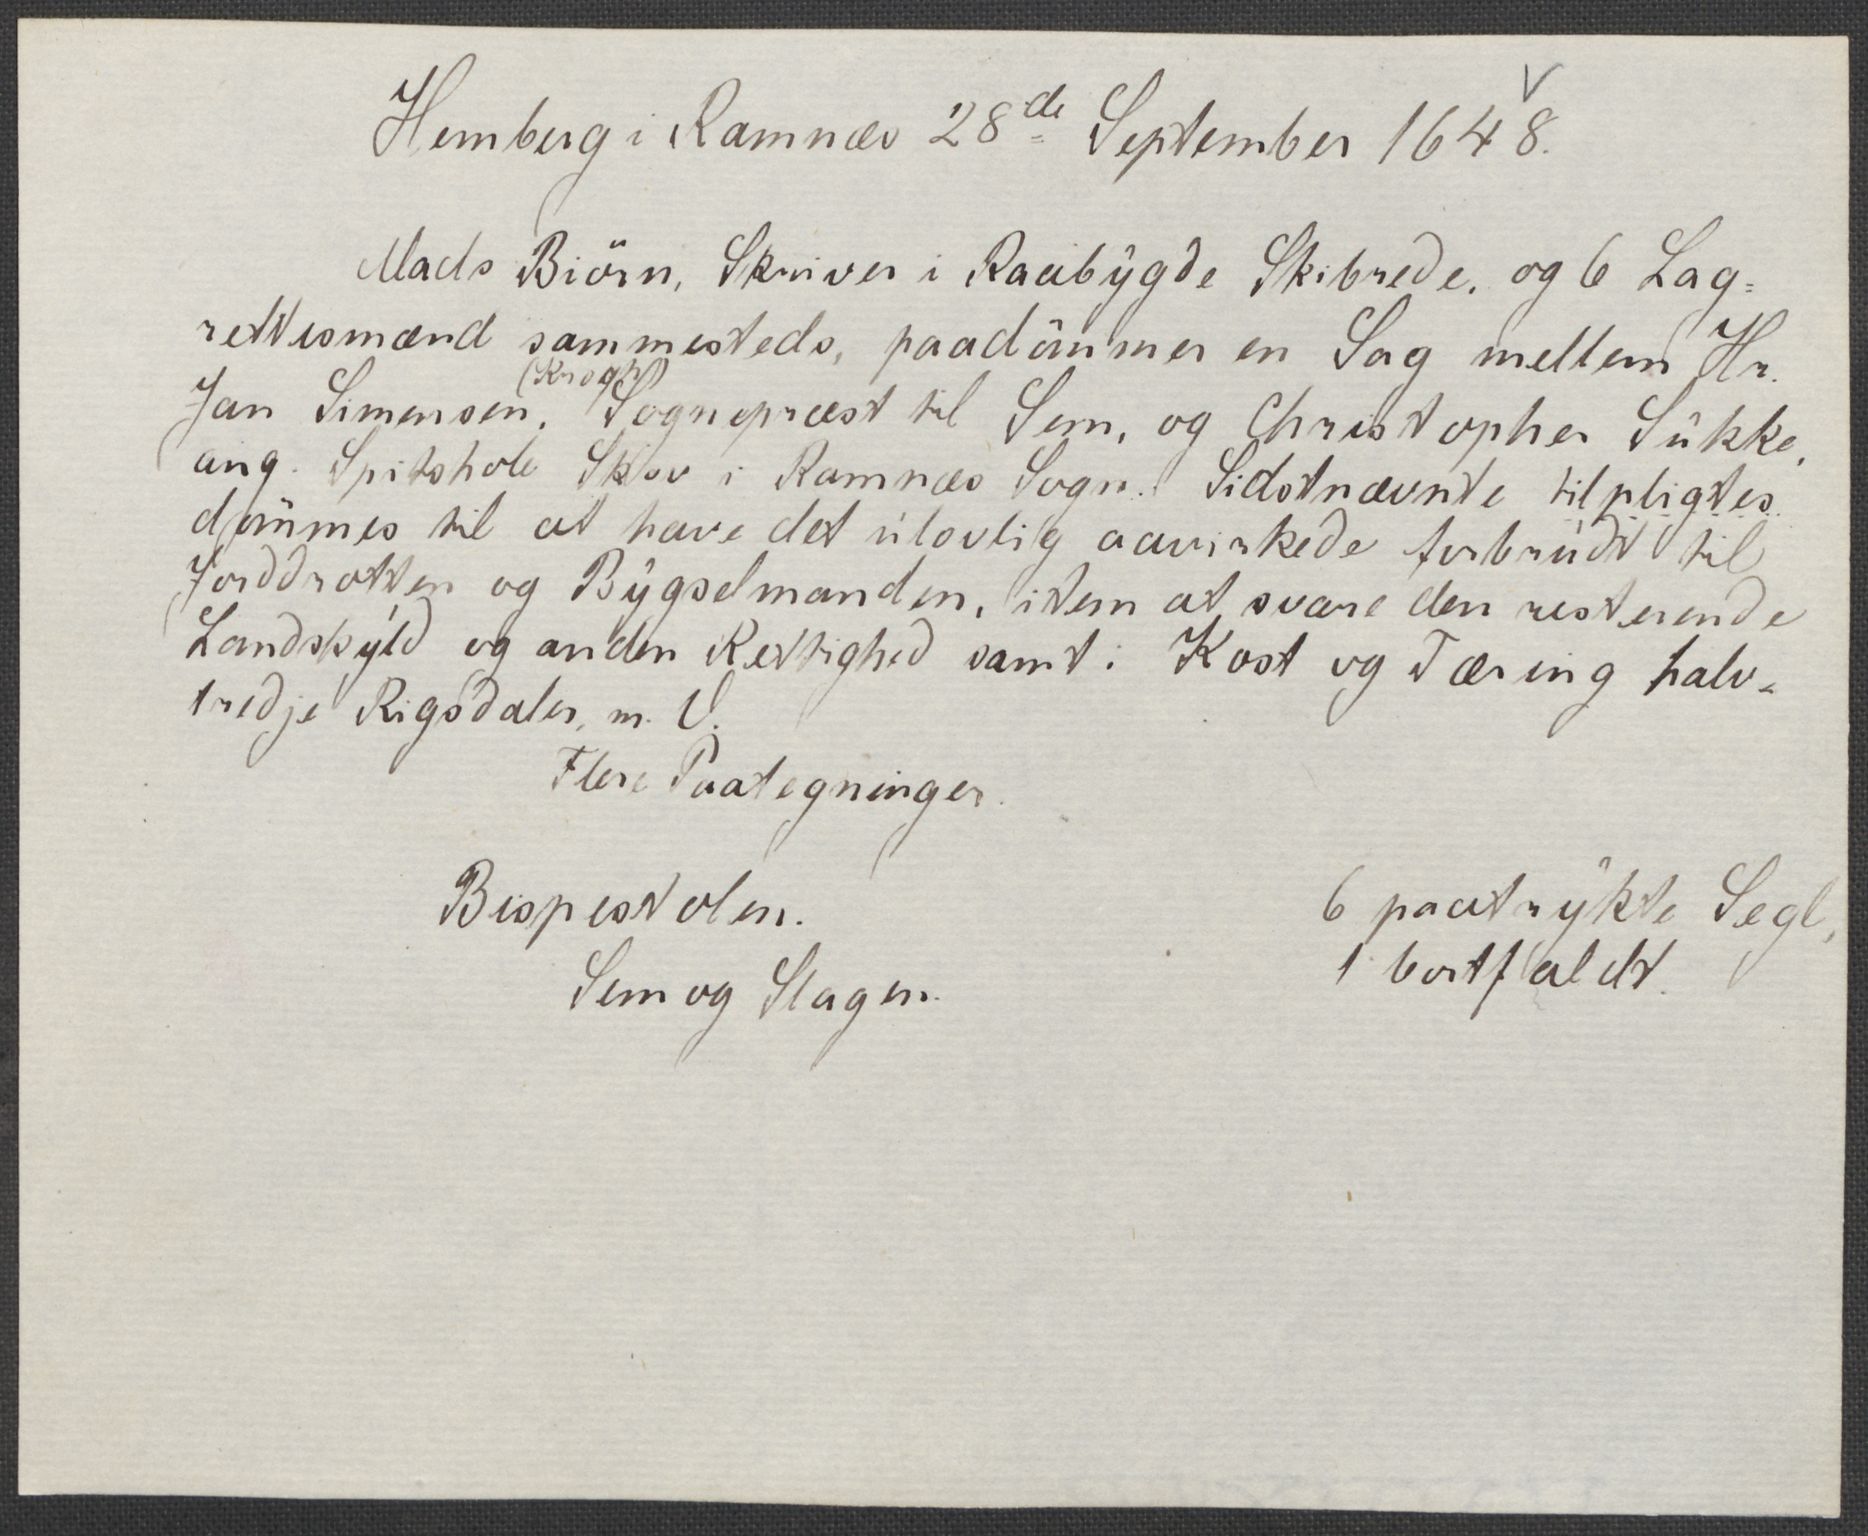 Hemberg i Ramnæs 28de September 1648.
Mads Biörn, Skriver i Raabÿgde Skibrede, og 6 Lag=
rettesmænd sammesteds, paadömmer en Sag mellem Hr.
(Krogh)
Jan Simensen, Sognepræst til Sem, og Christopher Sükke,
ang. Spitshole Skov i Ramnæs Sogn. Sidstnævnte tilpligtes
dömmes til at have det ülovlig aavirkede forbrüdt til
Jorddrotten og Bÿgselmanden, item at svare den resterende
Landskÿld og anden Rettighed samt i Kost og Tæring halv=
tredje Rigsdaler, m. V.
Flere Paategninger.
Bispestolen.
Sem og Slagen.
6 paatrÿkte Segl,
1 bortfaldt.